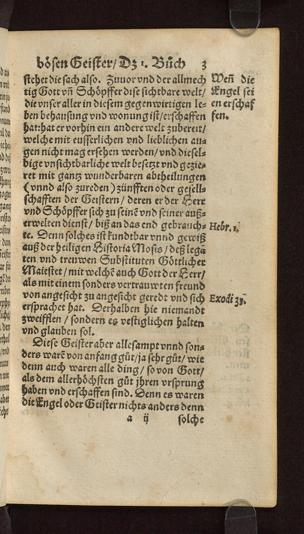 bösen Geister/ Dz 1. Bůch 3
stehet die sach also. Zuuor vnd der allmech
tig Gott vn̄ Schöpffer dise sichtbare welt/
die vnser aller in diesem gegenwirtigen le-
ben behausung vnd wonung ist/ erschaffen
hat: hat er vorhin ein andere welt zubereit/
welche mit eusserlichen vnd lieblichen au-
gen nicht mag ersehen werden/ vnd diesel-
bige vnsichtbarliche welt besetzt vnd gezie-
ret mit gantz wunderbaren abtheilungen
(vnnd also zureden) zünfften oder gesell-
schafften der Geistern/ deren er der Herr
vnd Schöpffer sich zu seinē vnd seiner auß-
erwelten dienst/ biß an das end gebrauch-
te. Denn solches ist kundtbar vnnd gewiß
auß der heiligen Historia Mosis/ deß lega
ten vnd trewen Substituten Göttlicher
Maiestet/ mit welchē auch Gott der Herr/
als mit einem sonders vertrauwten freund
von angesicht zu angesicht geredt vnd sich
ersprachet hat. Derhalben hie niemandt
zweifflen/ sondern es vestiglichen halten
vnd glauben sol.
Diese Geister aber allesampt vnnd son-
ders warē von anfang gůt/ ja sehr gůt/ wie
denn auch waren alle ding/ so von Gott/
als dem allerhöchsten gůt jhren vrsprung
haben vnd erschaffen sind. Denn es waren
die Engel oder Geister nichts anders denn
a ij solche
Weñ die
Engel sei
en erschaf
fen.
Hebr. 1.
Exodi 33.